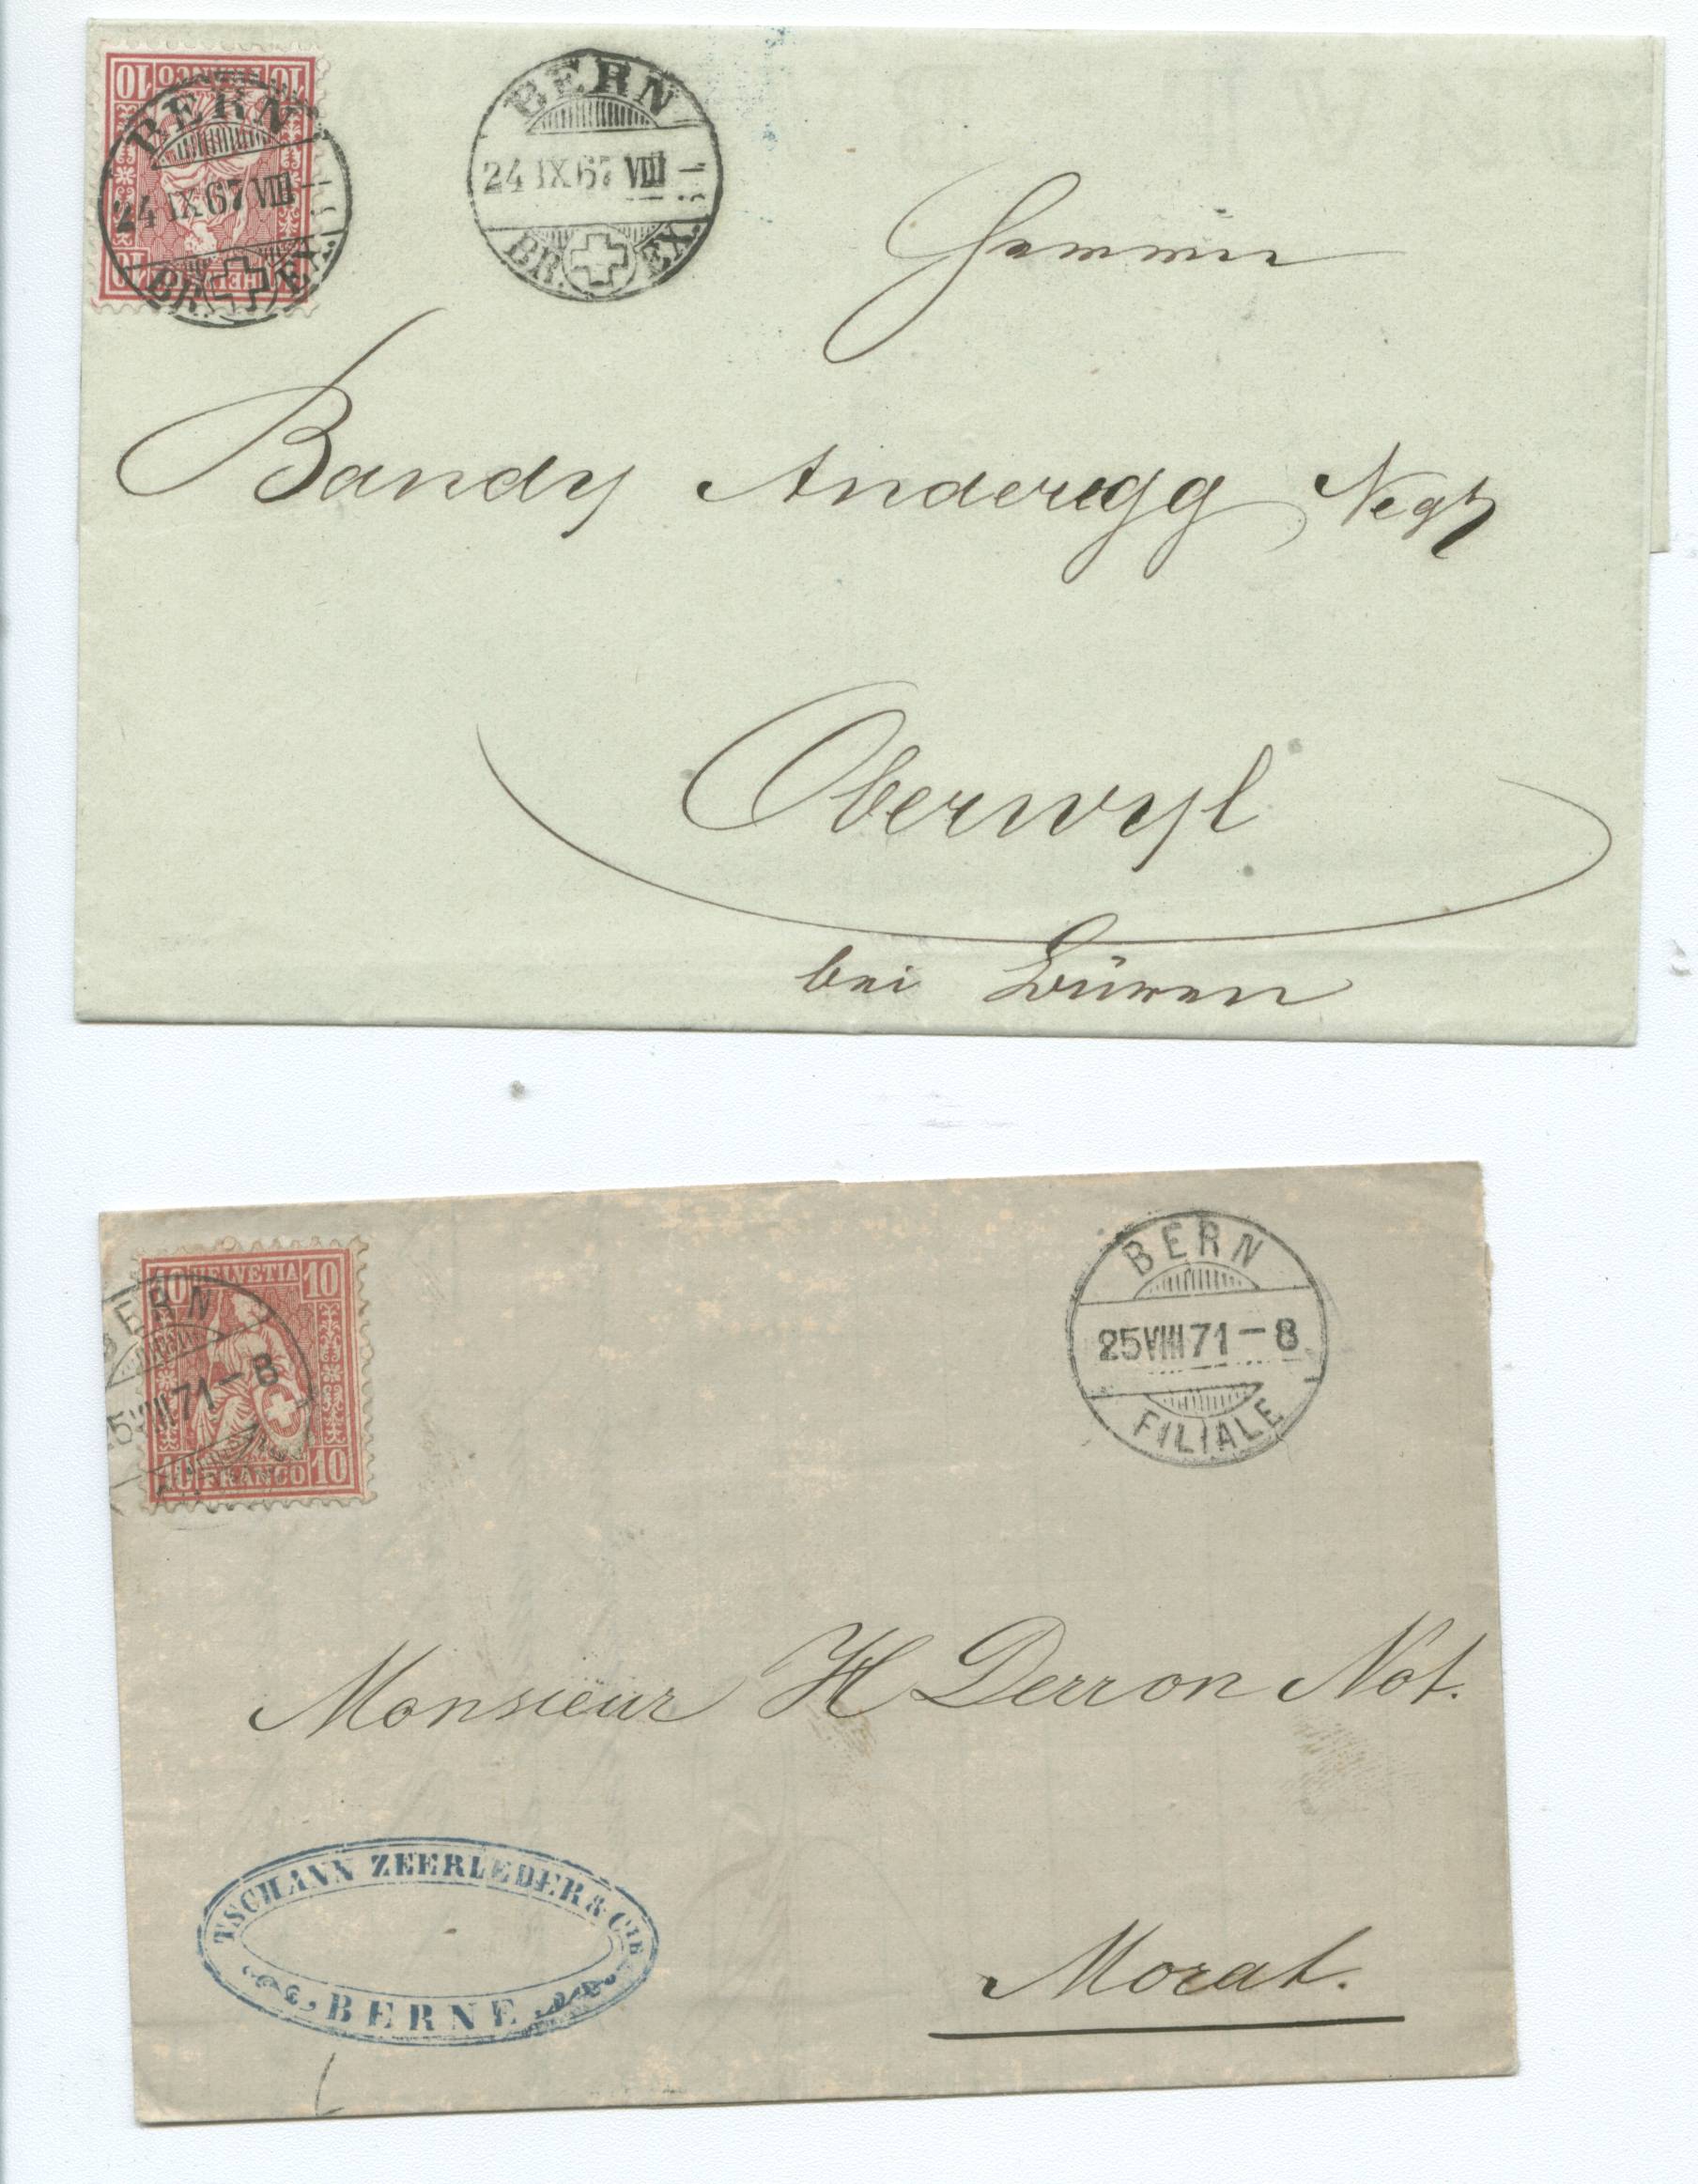 10 FRANCO 10
HELVETIA
BERN
24 IX 67 VIII
BR. EX.
BERN
24 IX 67 VIII
BR. EX.
Herren
Bandy Anderegg Negt
Oberwyl
bei Büren
10 HELVETIA 10
10 FRANCO 10
BERN
25 VIII 71 - 8
BERN
25 VIII 71 - 8
FILIALE
Monsieur H Derron Not.
TSCHANN ZEERLEDER & CIE
BERNE
Morat.